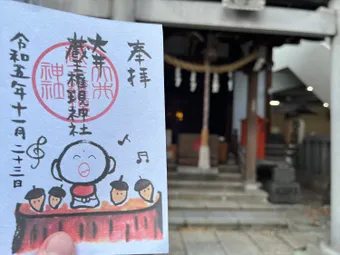 奉拝
大井
蔵王権現神社
令和五年十一月二十三日